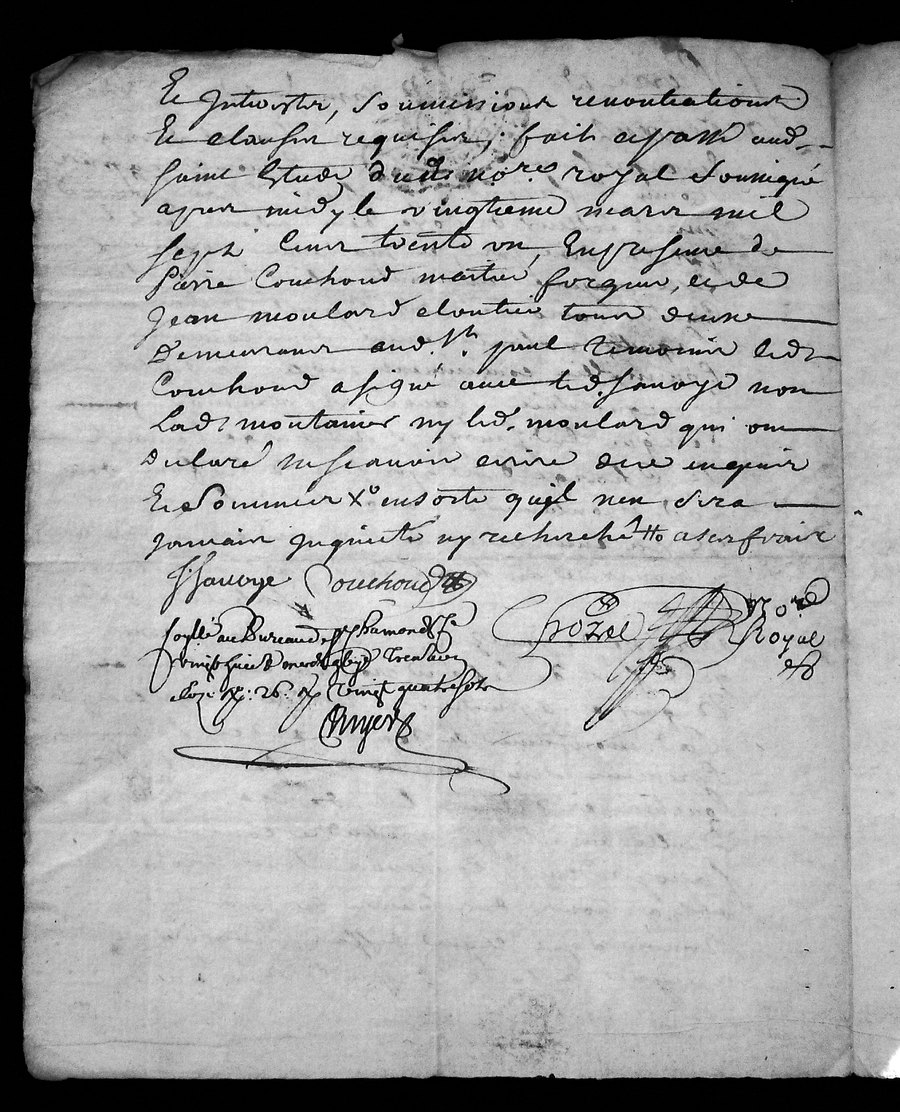 Et Jnterestz, soumissions renontiations
Et clauses requises, fait et passé aud.
saint Etude dudt. no.re royal soussigné
apres midy le vingtieme mars mil
sept cens trente un, En presence de
Pierre Couchoud maitre forgeur, et de
Jean moulard cloutier tous deux
Demeurans aud. st. paul temoins led.
Couchoud a signé avec led. sauoye non
Lad. montanier ny led. moulard qui ont
Declaré ne scauoir ecrire de ce enquis
Et sommés Xo ensorte quil nen sera
jamais jnquieté ny recherché tto a ses frais
J Sauoye Couchoud
Crozet no.re
Royal
scellé au Bureau de st chamond le
vingt mars trente un
vingt quatre sols